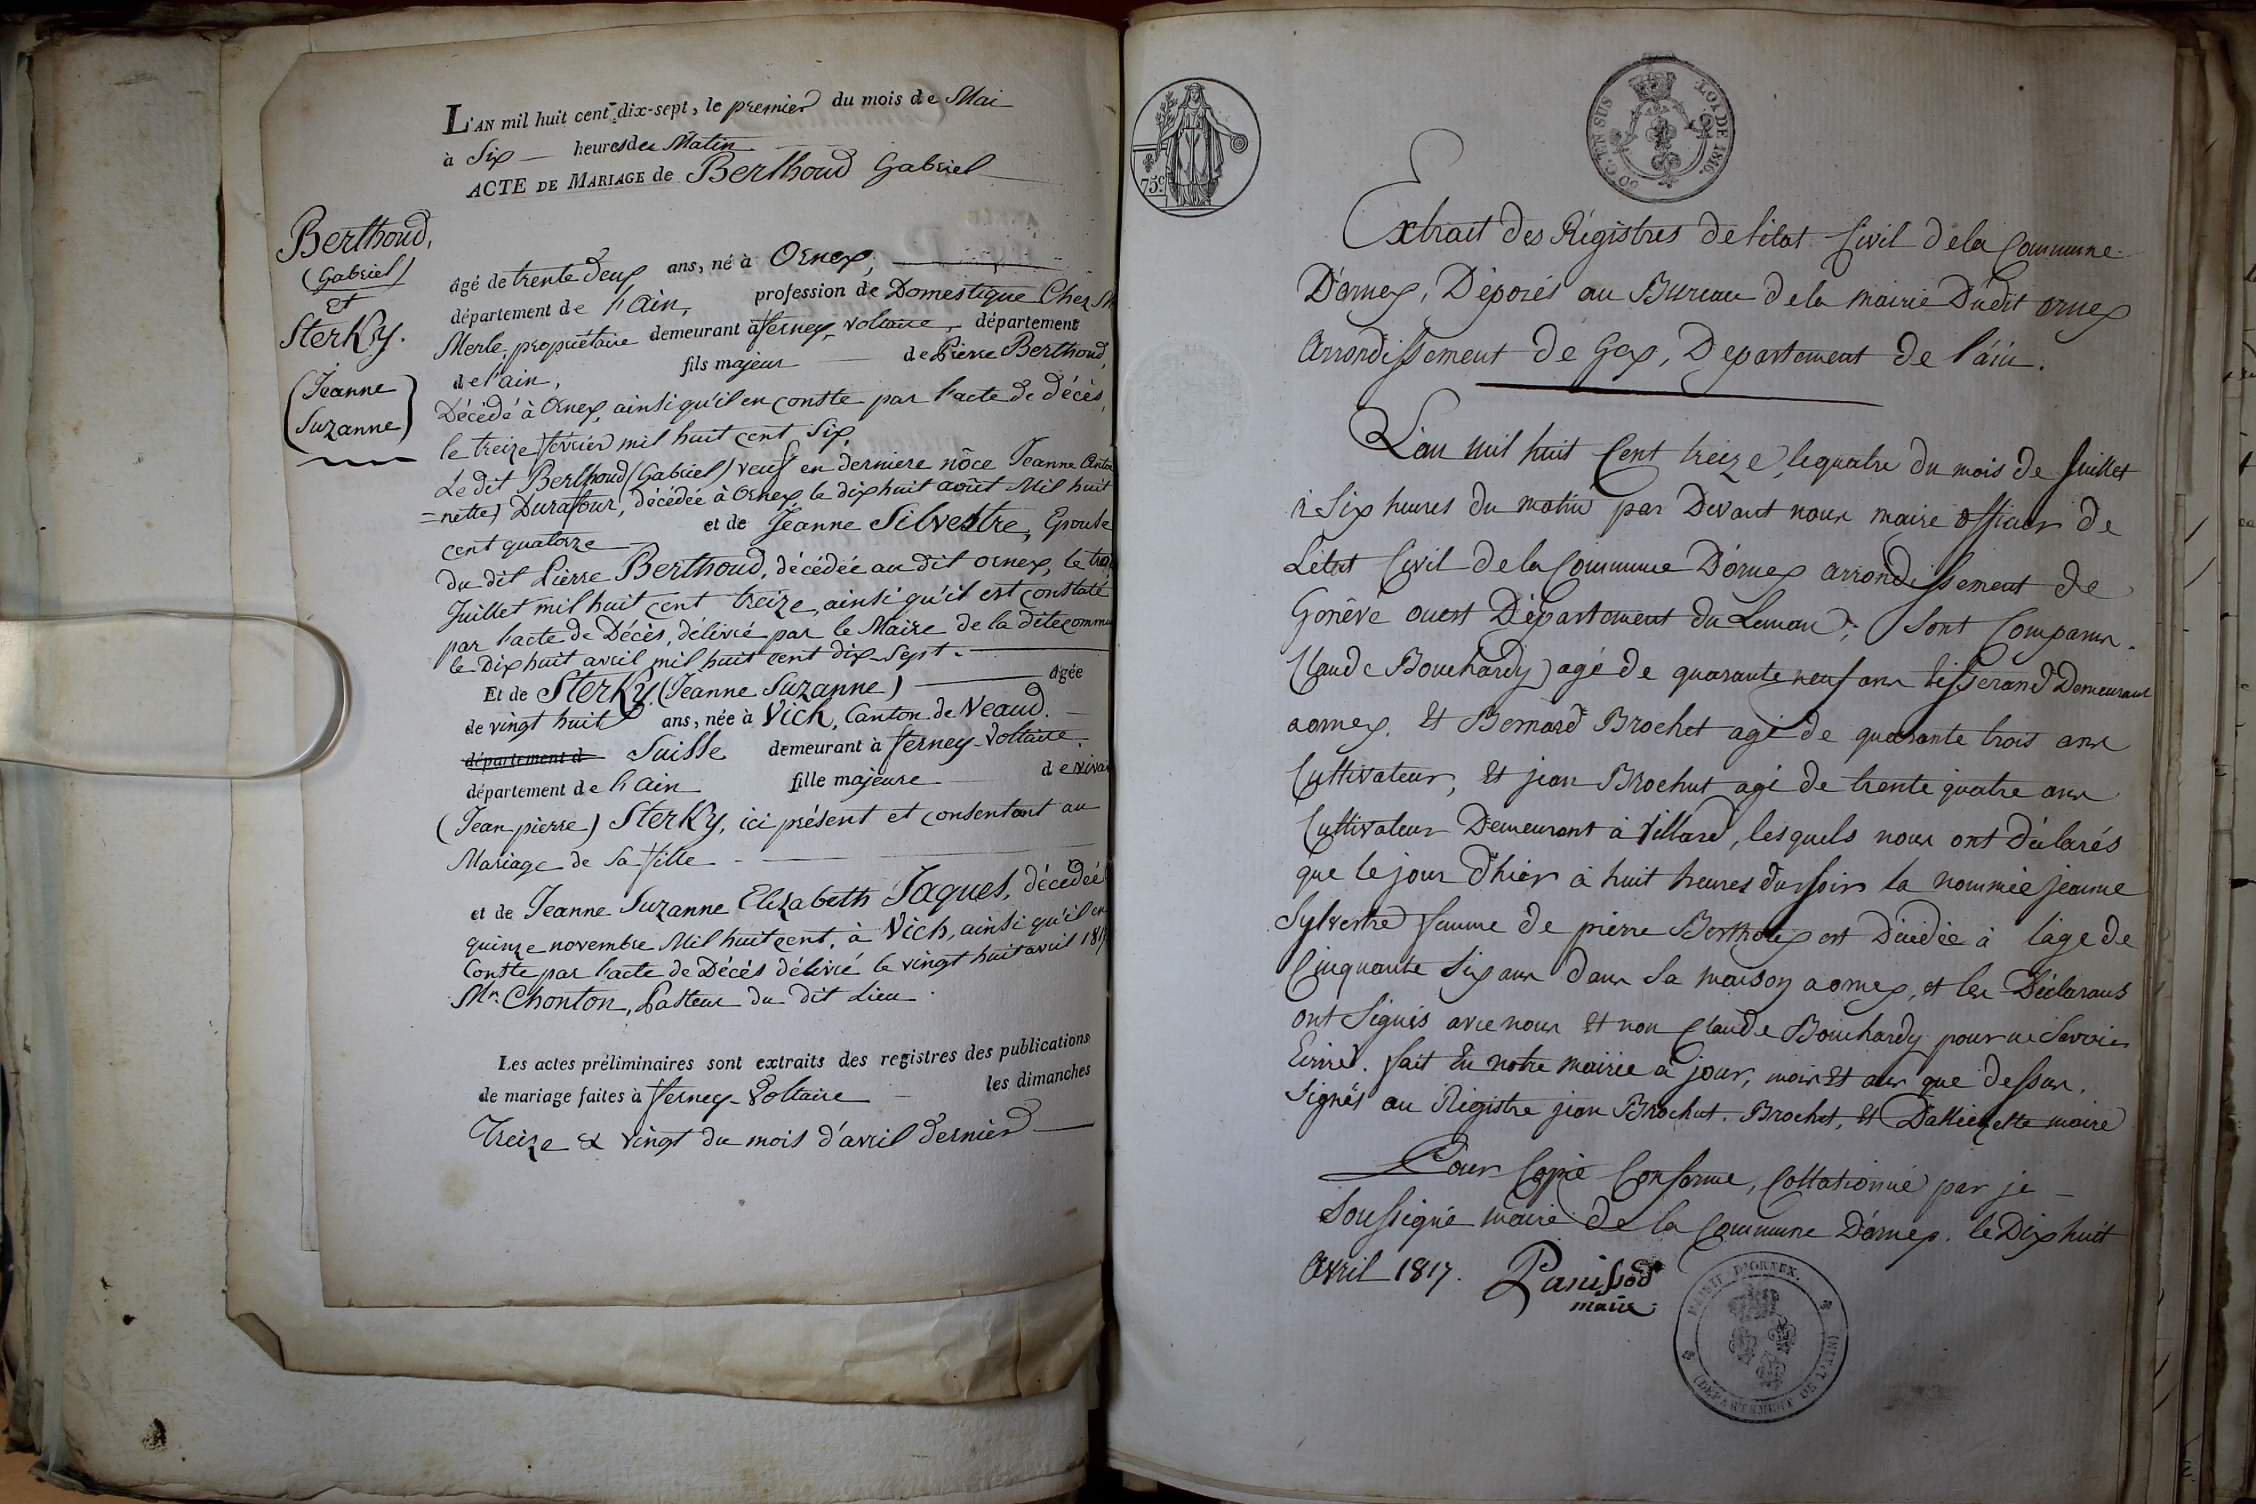 L'AN mil huit cent dix-sept, le premier du mois de Mai
à Six heures du Matin
ACTE DE MARIAGE de Berthoud Gabriel
Berthoud,
(Gabriel)
et
Sterky.
(Jeanne
Suzanne)
âgé de trente deux ans, né à Ornex,
département de l'ain, profession de Domestique Chez Mr
Merle, propriétaire demeurant à ferney-voltaire, département
de l'ain, fils majeur de Pierre Berthoud,
Décédé à Ornex, ainsi qu'il en conste par l'acte de décès,
le treize février mil huit cent Six,
Le dit Berthoud (Gabriel) veuf en derniere nôce Jeanne Antoi
=nette) Durafour, décédée à Ornex le dix huit août Mil huit
cent quatorze et de Jeanne Silvestre, Epouse
du dit Pierre Berthoud, décédée au dit ornex, le trois
Juillet mil huit cent treize, ainsi qu'il est constaté
par l'acte de Décès, délivré par le Maire de la dite commu
le Dix huit avril mil huit cent dix-Sept.
Et de Sterky. (Jeanne Suzanne) âgée
de vingt huit ans, née à Vich, Canton de Veaud.
département d Suisse demeurant à ferney-Voltaire.
département de l'ain fille majeure de vivan
(Jean pierre) Sterky, ici présent et consentant au
Mariage de Sa fille
et de Jeanne Suzanne Elizabeth Jaques, décédée
quinze novembre Mil huit cent, à Vich, ainsi qu'il en
Conste par l'acte de Décès délivré le vingt huit avril 1817
Mr. Chonton, Pasteur du dit Lieu.
Les actes préliminaires sont extraits des registres des publications
de mariage faites à ferney-Voltaire les dimanches
Treize & vingt du mois d'avril dernier
75c
50 C. EN SUS LOI DE 1816.
Extrait des Régistres de l'état Civil de la Commune
D'ornex, Déposés au Bureau de la mairie Dudit ornex
Arrondissement de Gex, Departement de l'ain.
L'an mil huit Cent treize, le quatre du mois de Juillet
à Six heures du matin par Devant nous maire officier de
L'état Civil de la Commune D'ornex arrondissement de
Genève ouest Département du Leman; Sont Comparus
Claude Bouchardy agé de quarante neuf ans tisserand Demeurant
aornex. Et Bernard Brochet agé de quarante trois ans
Cultivateur, Et jean Brochut agé de trente quatre ans
Cultivateur Demeurant à Villard, lesquels nous ont Déclarés
que le jour d'hier à huit heures du soir la nommée jeanne
Sylvestre femme de pierre Berthoux est Décédée à l'age de
Cinquante Six ans dans Sa maison aornex, et les Déclarans
ont Signés avec nous Et non Claude Bouchardy pour ne Savoir
Ecrire. fait En notre mairie à jour, mois Et an que dessus.
Signés au Régistre jean Brochut. Brochet, Et Dalliezette maire
Pour Copie Conforme, Collationné par je
Soussigné maire de la Commune D'ornex. le Dix huit
Avril 1817. Panissod
maire
MAIRIE D'ORNEX.
(DEPARTEMENT DE L'AIN)